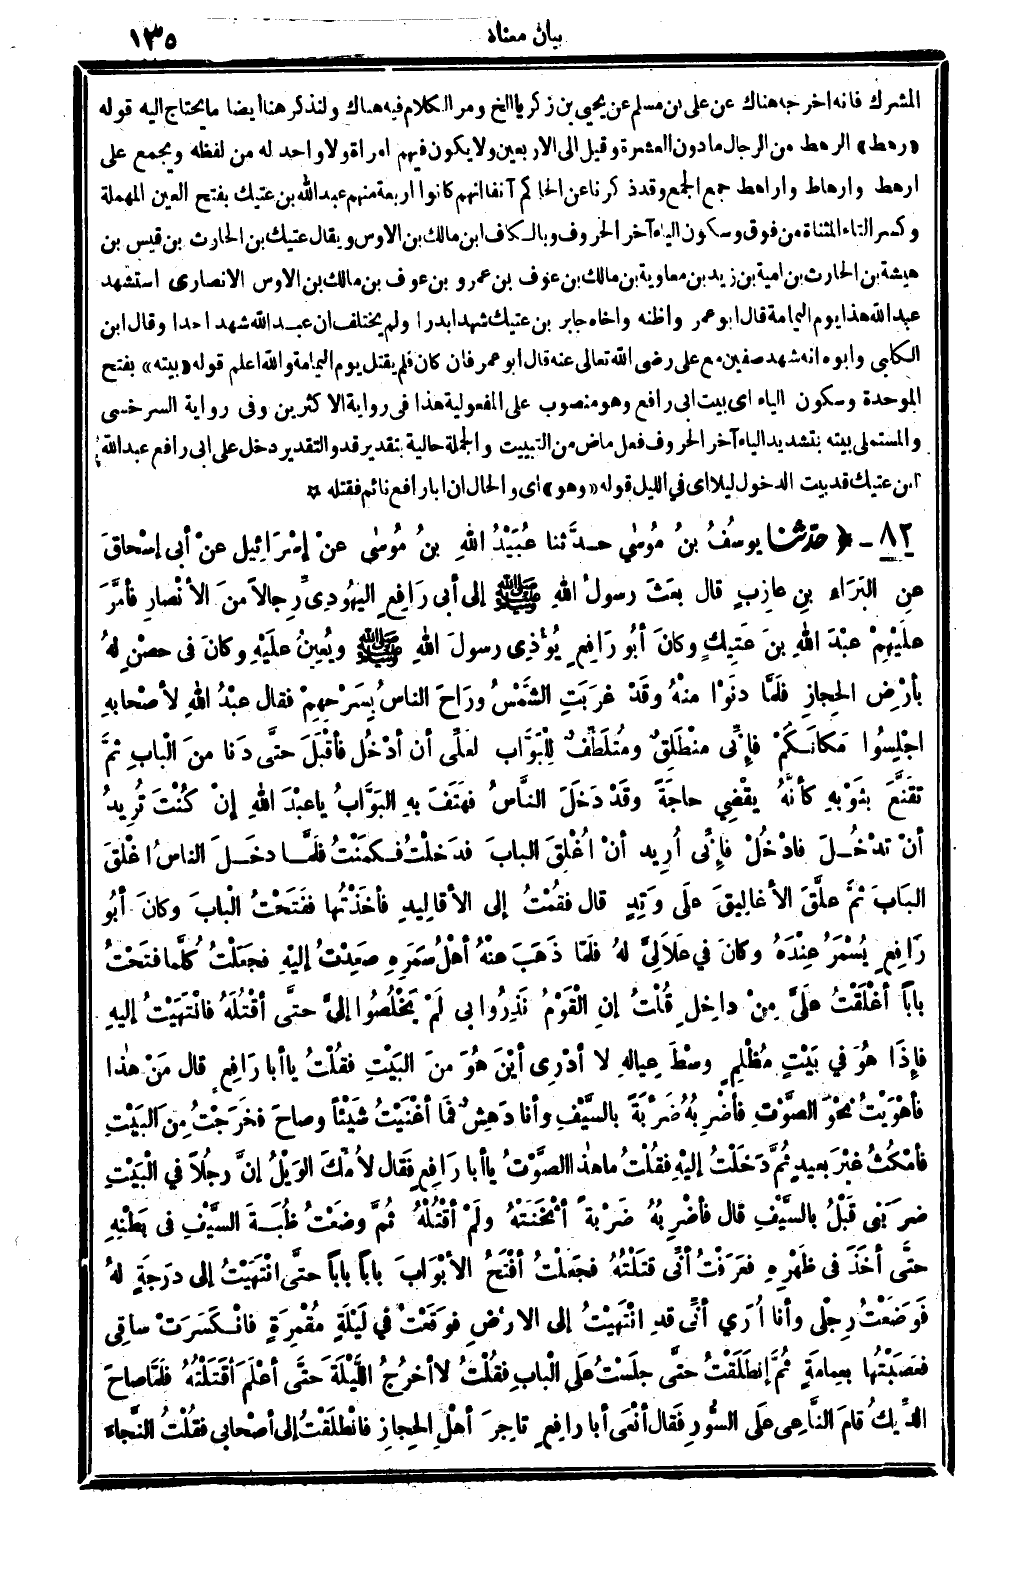 بيان معناه ١٣٥
المشرك فانه اخرجه هناك عن على بن مسلم عن يحيى بن زكريا الخ ومر الكلام فيه هناك ولنذكر هنا أيضا ما يحتاج اليه قوله
«رهط» الرهط من الرجال مادون العشرة وقيل الى الاربعين ولا يكون فيهم امرأة ولا واحد له من لفظه ويجمع على
ارهط وارهاط واراهط جمع الجمع وقد ذكرنا عن الحاكم آنفا انهم كانوا اربعة منهم عبدالله بن عتيك بفتح العين المهملة
وكسر التاء المثناة من فوق وسكون الياء آخر الحروف وبالكاف ابن مالك بن الاوس ويقال عتيك بن الحارث بن قيس بن
هيشة بن الحارث بن امية بن زيد بن معاوية بن مالك بن عوف بن عمرو بن عوف بن مالك بن الاوس الانصارى استشهد
عبدالله هذا يوم اليمامة قال ابو عمر واظنه واخاه جابر بن عتيك شهدا بدرا ولم يختلف ان عبدالله شهد احدا وقال ابن
الكلبي وابوه انه شهد صفين مع على رضى الله تعالى عنه قال ابو عمر فان كان فلم يقتل يوم اليمامة والله اعلم قوله «بيته» بفتح
الموحدة وسكون الياء اى بيت ابى رافع وهو منصوب على المفعولية هذا فى رواية الاكثرين وفى رواية السرخسى
والمستملى بيته بتشديد الياء آخر الحروف فعل ماض من التبييت والجملة حالية بتقدير قد والتقدير دخل على ابى رافع عبدالله
ابن عتيك قد بيت الدخول ليلا اى في الليل قوله «وهو» اى والحال ان ابا رافع نائم فقتله ¤
٨٢ - ﴿ حَدَّثَنَا يوسُفُ بنُ مُوسٰي حدَّثنا عُبَيْدُ اللهِ بنُ مُوسٰى عنْ إسْرَائِيلَ عنْ أبى إسْحاقَ
عنِ البَرَاءِ بنِ عازِبٍ قال بعَثَ رسولُ اللهِ ﷺ إلى أبى رَافِعٍ اليَهُودِىِّ رِجالاً منَ الأنْصارِ فأمَّرَ
علَيْهِمْ عبْدَ اللهِ بنَ عَتِيكٍ وكانَ أبُو رَافِعٍ يُوْذِى رسولَ اللهِ ﷺ ويُعِينُ علَيْهِ وكانَ فى حصْنٍ لهُ
بأرْضِ الحِجازِ فلَمَّا دنَوْا منْهُ وقَدْ غرَبَتِ الشَّمْسُ ورَاحَ الناسُ بِسَرْحِهِمْ فقال عبْدُ اللهِ لأصْحابِهِ
اجْلِسُوا مَكانَكُمْ فإنِّى منْطَلِقٌ ومُتلَطِّفٌ لِلْبَوَّاب لعَلِّى أن أدْخُل فأقْبَلَ حتَّى دَنا منَ الْبابِ ثمَّ
تقَنَّعَ بثَوْبِهِ كأنَّهُ يقْضِي حاجَةً وقَدْ دَخَلَ النَّاسُ فهَتَفَ بِهِ البَوَّابُ ياعبْدَ اللهِ إنْ كُنْتَ تُرِيدُ
أنْ تدْخُلَ فادْخُلْ فإنِّى أُرِيد أنْ أُغْلِقَ البابَ فدَخلْتُ فكمَنْتُ فلَمَّا دخَلَ الناسُ أغْلَقَ
البَابَ ثمَّ علَّقَ الأغالِيقَ علَى وَتِدٍ قال فقُمْتُ إلى الأقالِيدِ فأخَذْتُها ففَتَحْتُ الْبابَ وكانَ أبُو
رَافِعٍ يُسْمَرُ عِنْدَهُ وكانَ في عَلاَلِىَّ لهُ فلَمَّا ذهَبَ عنْهُ أهْلُ سَمَرِهِ صعِدْتُ إليْهِ فجعَلْتُ كُلَّما فتَحْتُ
باباً أغْلَقْتُ علَىَّ مِنْ داخِلٍ قُلْتُ إنِ الْقَوْمُ نَذِرُوا بى لَمْ يَخْلُصُوا إلىَّ حتَّى أقْتُلَهُ فانْتَهَيْتُ إليهِ
فإذَا هُوَ في بَيْتٍ مُظْلِمٍ وسْطَ عِيالِهِ لا أدْرِى أيْنَ هُوَ منَ البَيْتِ فقُلْتُ ياأبا رَافِعٍ قال مَنْ هٰذا
فأهْوَيْتُ نحْوَ الصَّوْتِ فأضْرِبُهُ ضَرْبَةً بالسَّيْفِ وأنا دَهِشٌ فَما أغْنَيْتُ شَيْئاً وصاحَ فخَرَجْتُ مِنَ البَيْتِ
فأمْكُثُ غيْرَ بعيدٍ ثُمَّ دَخَلْتُ إليْهِ فقُلْتُ ماهذا الصَّوْتُ ياأبا رَافِعٍ فَقال لأُمِّكَ الوَيْلُ إنَّ رجُلاً في الْبَيْتِ
ضرَبَنى قَبْلُ بالسيْفِ قال فأضْرِبُهُ ضَرْبةً أثْخَنَتْهُ ولَمْ أقْتُلْهُ ثُمَّ وضَعْتُ ظُبَةَ السَّيْفِ فى بَطْنِهِ
حتَّى أخَذَ فى ظَهْرِهِ فعَرَفْتُ أنِّى قتَلْتُهُ فجَعَلْتُ أفْتَحُ الأبْوَابَ باباً باباً حتى انْتَهَيْتُ إلى درَجَةٍ لهُ
فَوَضَعْتُ رِجْلى وأنا أُرَي أنِّى قدِ انْتَهَيْتُ إلى الارْضِ فوَقَعْتُ في لَيْلَةٍ مُقْمِرَةٍ فانْكَسَرَتْ ساقِى
فعَصَبْتُها بعِمامَةٍ ثُمَّ إنْطَلَقْتُ حتَّى جلَسْتُ علَى الْبابِ فقُلْتُ لاأخرُجُ اللَّيْلَةَ حتَّى أعْلَمَ أقَتَلْتُهُ فلَمَّا صاحَ
الدِّيكُ قامَ النَّاعِى علَى السُّورِ فَقال أنْعَى أبا رافِعٍ تاجِرَ أهْلِ الحِجازِ فانْطلَقْتُ إلى أصْحابى فقُلْتُ النَّجاءَ